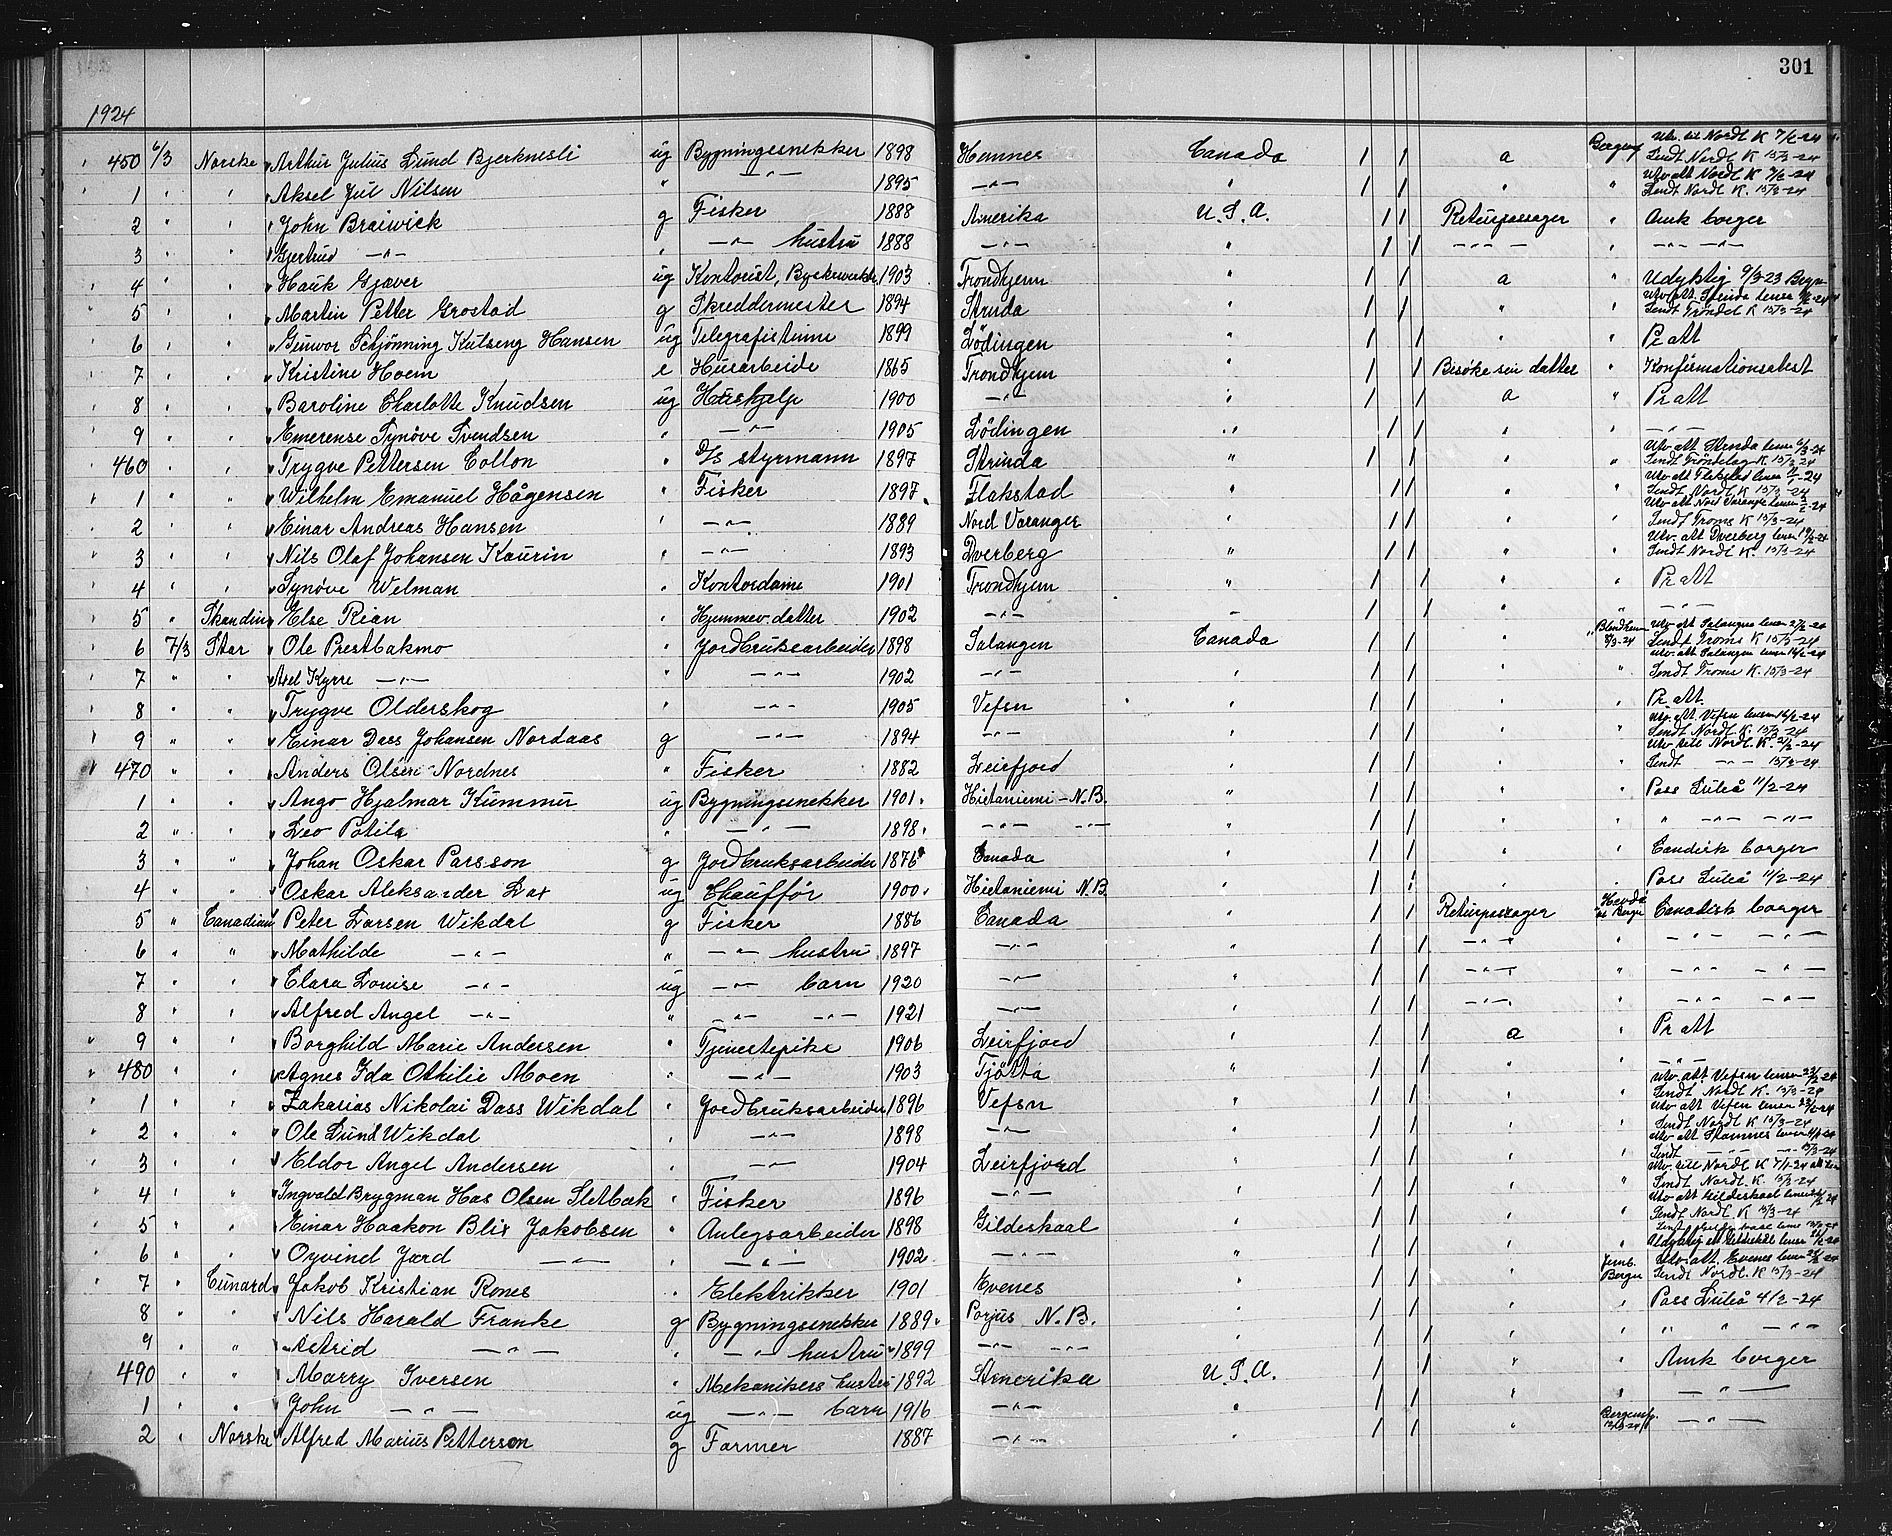 301
1924
450 6/3 Norske " Arthur Julius Lund Bjerknesli ug Bygningssnekker 1898 Hennes Canada / / a Utv. til Nordl K 7/2-24 Sendt Nordl K 15/3-24
1 " " " Aksel Jul Nilsen " —"— 1895 —"— " / / " " Utv att Nordl K Sendt Nordl K. 15/3-24
2 " " " John Braiwick g Fisker 1888 Amerika U.S.A. / / Returpassager " Amk borger
3 " " " Gjertrud —"— " —"— hustru 1888 —"— " / / —"— " —"— —"—
4 " " " Hauk Gjæver ug Kontorist, 1903 Trondhjem " / / a " Udyktig 9/3-23
5 " " " Martin Petter Grostad g Skreddermester 1894 Strinda " / / " " Utv att Strinda Sendt Trøndel K 15/3-24
6 " " " Gunvor Schjønning Hansen ug Telegrafistinne 1899 Lödingen " / / " " Pr att
7 " " " Kristine Hoem e Husarbeide 1865 Trondhjem " / / Besöke sin datter " Konfirmationsatest
8 " " " Baroline Charlotte Knudsen ug Hushjelp 1900 —"— " / / a " Pr att
9 " " " Emerense Synöve Svendsen " —"— 1905 Lödingen " / / " " —"—
460 " " " Trygve Pettersen Collon " D/S styrmann 1897 Strinda " / / " " Utv att Strinda Sendt Tröndelag K 15/3 24
1 " " " Wilhelm Emanuel Hågensen " Fisker 1897 Flakstad " / / " " Utv att Flakstad Sendt Nordl K 15/3-24
2 " " " Einar Andreas Hansen " —"— 1889 Nord Varanger " / / " " Utv att Nord Varanger Sendt Troms K 15/3-24
3 " " " Nils Olaf Johansen Kaurin " —"— 1893 Dverberg " / / " " Utv. att Dverberg Sendt Nordl K. 15/3-24
4 " " " Synöve Welman " Kontordame 1901 Trondhjem " / / " " Pr att
5 " Skandin " Else Rian " Hjemmev. datter 1902 —"— " / / " " —"—
6 7/3 Star " Ole Prestbakmo " Jordbruksarbeider 1898 Salangen Canada / / " Utv att Salangen Sendt Troms K 15/3-24
7 " " " Axel Kyrre —"— " —"— 1902 —"— " / / " " Utv. att Salangen Sendt Troms K. 15/3-24
8 " " " Trygve Olderskog " —"— 1905 Vefsn " / / " " Pr att.
9 " " " Einar Dass Johansen Nordaas g —"— 1894 —"— " / / " " Utv. att. Vefsn Sendt Nordl K. 15/3-24
470 " " " Anders Olsen Nordnes " Fisker 1882 Leirfjord " / / " " Utv till Nordl. K. Sendt —"— 15/3-24
1 " " " Ango Hjalmar Kummu ug Bygningssnekker 1901 Hietaniemi - N.B. " / / " " Pass Luleå 11/2-24
2 " " " Leo Potila " —"— 1898 —"— —"— " / / " " " —"— —"—
3 " " " Johan Oskar Parsson g Jordbruksarbeider 1876 Canada " / / " " Candisk borger
4 " " " Oskar Aleksander Lax ug Chaufför 1900 Hietaniemi N.B. " / / " " Pass Luleå 11/2-24
5 " Canadian " Peter Larsen Wikdal g Fisker 1886 Canada " / / Returpassager Canadisk borger
6 " " " Mathilde —"— " —"— hustru 1897 —"— " / / —"— " —"— —"—
7 " " " Clara Louise —"— ug —"— barn 1920 —"— " / / —"— " —"— —"—
8 " " " Alfred Angel —"— " —"— —"— 1921 —"— " / / —"— " —"— —"—
9 " " " Borghild Marie Andersen " Tjenestepike 1906 Leirfjord " / / a " Pr att
480 " " " Agnes Ida Othilie Moen " —"— 1903 Tjötta " / / " " —"—
1 " " " Zakarias Nikolai Dass Wikdal " Jordbruksarbeider 1896 Vefsn " / / " " Utv. att Vefsn Sendt Nordl K. 15/3-24
2 " " " Ole Lund Wikdal " —"— 1898 —"— " / / " " Utv att Vefsn Sendt Nordl K 15/3-24
3 " " " Eldor Angel Andersen " —"— 1904 Leirfjord " / / " " Utv att Stamnes Sendt —"— 15/3-24
4 " " " Ingvald Brygman Has Olsen Sletbak " Fisker 1896 —"— " / / " " Utv. till Nordl K 7/1-24 Sendt Nordl. K. 15/3-24
5 " " " Einar Haakon Blix Jakobsen " Anlegsarbeider 1898 Gildeskaal " / / " " Utv att Gildeskaal Sendt Nordl K 15/3-24
6 " " " Oyvind Jærd —"— " —"— 1902 —"— " / / " "
7 " Cunard " Jakob Kristian Rones " Elektrikker 1901 Evenes " / / " Utv. att. Evenes Sendt Nordl. K 15/3-24
8 " " " Nils Harald Franke g Bygningssnekker 1889 Porjus N.B. " / / " " Pass Luleå 4/2-24
9 " " " Astrid —"— " —"— hustru 1899 —"— —"— " / / " " " " —"—
490 " " " Marry Iversen " Mekanikers hustru 1892 Amerika U.S.A. / / " " Amk borger
1 " " " John —"— ug —"— barn 1916 —"— " / / " " " —"—
2 " Norske " Alfred Marius Petterson g Farmer 1887 —"— " / / " —"—